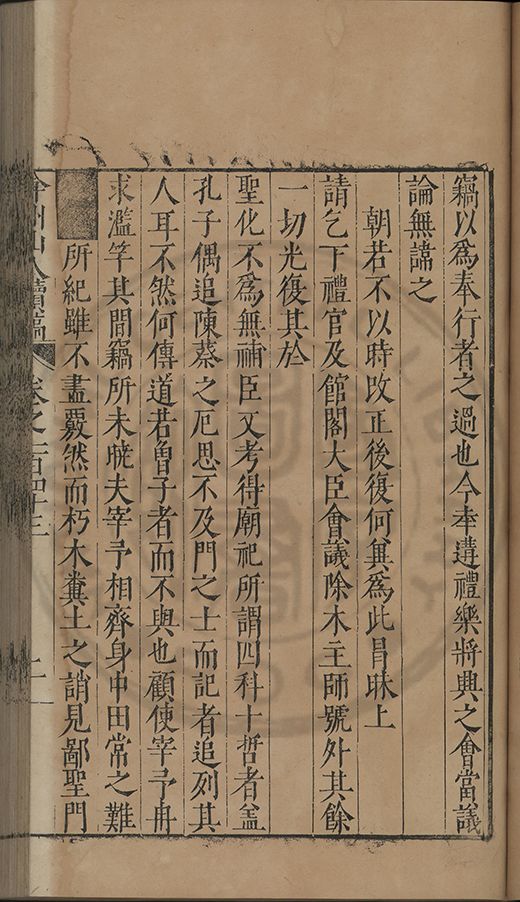 竊以為奉行者之過也今幸遘禮樂將興之會當議
論無諱之
朝若不以時改正後復何冀為此冒昧上
請乞下禮官及館閣大臣會議除木主師號外其餘
一切光復其於
聖化不為無補臣又考得廟祀所謂四科十哲者蓋
孔子偶追陳蔡之厄思不及門之士而記者追列其
人耳不然何傳道若曾子者而不與也顧使宰予冉
求濫竽其間竊所未曉夫宰予相齊身中田常之難
所紀雖不盡覈然而朽木糞土之誚見鄙聖門
弇州山人續稿 卷之一百四十三